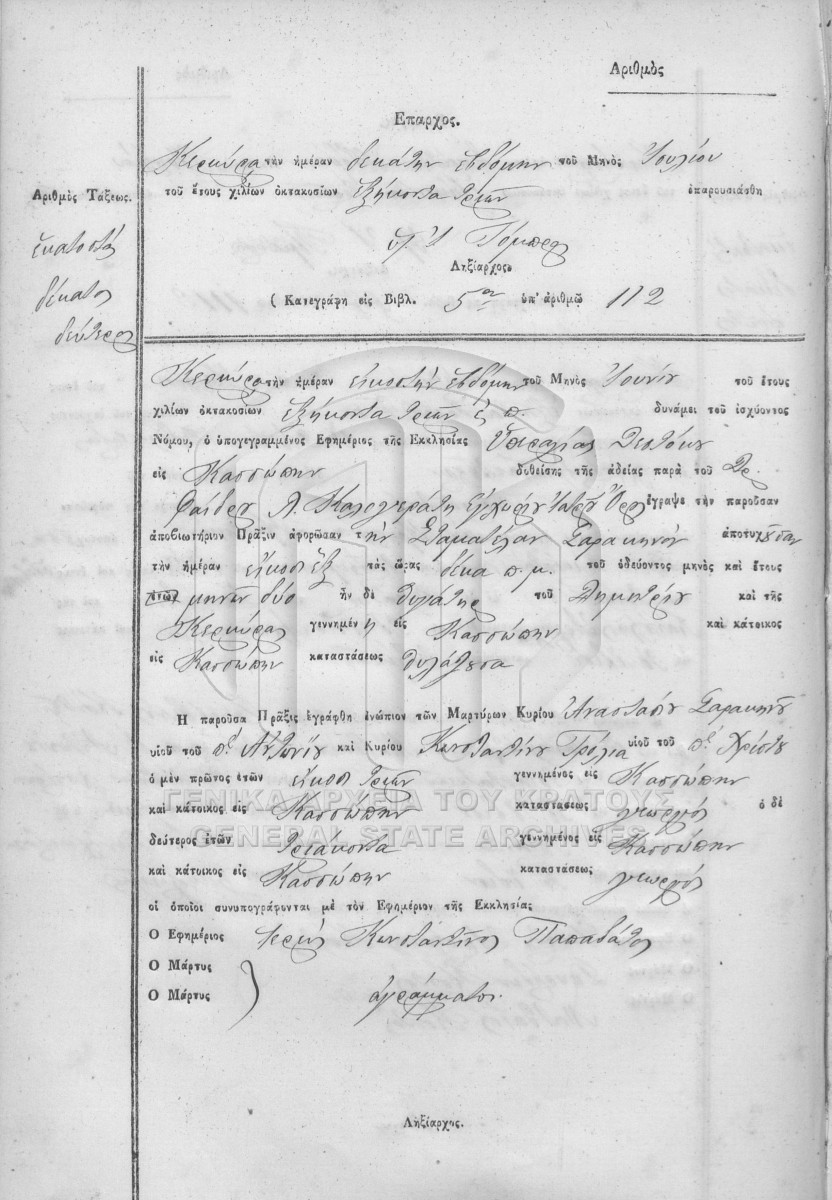 Αριθμὸς
Επαρχος.
Κερκύρα τὴν ἡμέραν δεκάτην ἑβδόμην τοῦ Μηνὸς Ἰουλίου
τοῦ ἔτους χιλίων ὀκτακοσίων ἑξήκοντα τριῶν ἐπαρουσιάσθη
Ληξίαρχος
( Κατεγράφη εἰς Βιβλ. 5ον ὑπ' ἀριθμῷ 112
Αριθμὸς Τάξεως.
ἑκατοστὸς
δέκατος
δεύτερος
Κερκύρα τὴν ἡμέραν εἰκοστὴν ἑβδόμην τοῦ Μηνὸς Ἰουνίου τοῦ ἔτους
χιλίων ὀκτακοσίων ἑξήκοντα τριῶν ἐ. π. δυνάμει τοῦ ἰσχύοντος
Νόμου, ὁ ὑπογεγραμμένος Εφημέριος τῆς Εκκλησίας Ὑπεραγίας Δεσποίνης
εἰς Κασσώπην δοθείσης τῆς ἀδείας παρὰ τοῦ Δρ.
Φαίδρου Λ. Καλογεράτη ἔγραψε τὴν παροῦσαν
ἀποβιωτήριον Πρᾶξιν ἀφορῶσαν τὴν Σταματέλαν Σαρακηνοῦ ἀποτυχοῦσαν
τὴν ἡμέραν εἴκοσι ἓξ τὰς ὥρας δέκα π. μ. τοῦ ὁδεύοντος μηνὸς καὶ ἔτους
ἐτῶν μηνῶν δύο ἦν δὲ θυγάτηρ τοῦ Δημητρίου καὶ τῆς
Κερκύρας γεννημένη εἰς Κασσώπην καὶ κάτοικος
εἰς Κασσώπην καταστάσεως
Η παροῦσα Πρᾶξις ἐγράφθη ἐνώπιον τῶν Μαρτύρων Κυρίου Ἀναστασίου Σαρακηνοῦ
υἱοῦ τοῦ πτ Ἀντωνίου καὶ Κυρίου Κωνσταντίνου Γρόλια υἱοῦ τοῦ πτ Χρίστου
ὁ μὲν πρῶτος ἐτῶν εἴκοσι τριῶν γεννημένος εἰς Κασσώπην
καὶ κάτοικος εἰς Κασσώπην καταστάσεως γεωργὸς ὁ δὲ
δεύτερος ἐτῶν τριάκοντα γεννημένος εἰς Κασσώπην
καὶ κάτοικος εἰς Κασσώπην καταστάσεως γεωργὸς
οἱ ὁποῖοι συνυπογράφονται μὲ τὸν Εφημέριον τῆς Εκκλησίας
Ο Εφημέριος Ἱερεὺς Κωνσταντῖνος Παπαδάτος
Ο Μάρτυς
Ο Μάρτυς ἀγράμματοι.
Ληξίαρχος.
ΓΕΝΙΚΑ ΑΡΧΕΙΑ ΤΟΥ ΚΡΑΤΟΥΣ
GENERAL STATE ARCHIVES